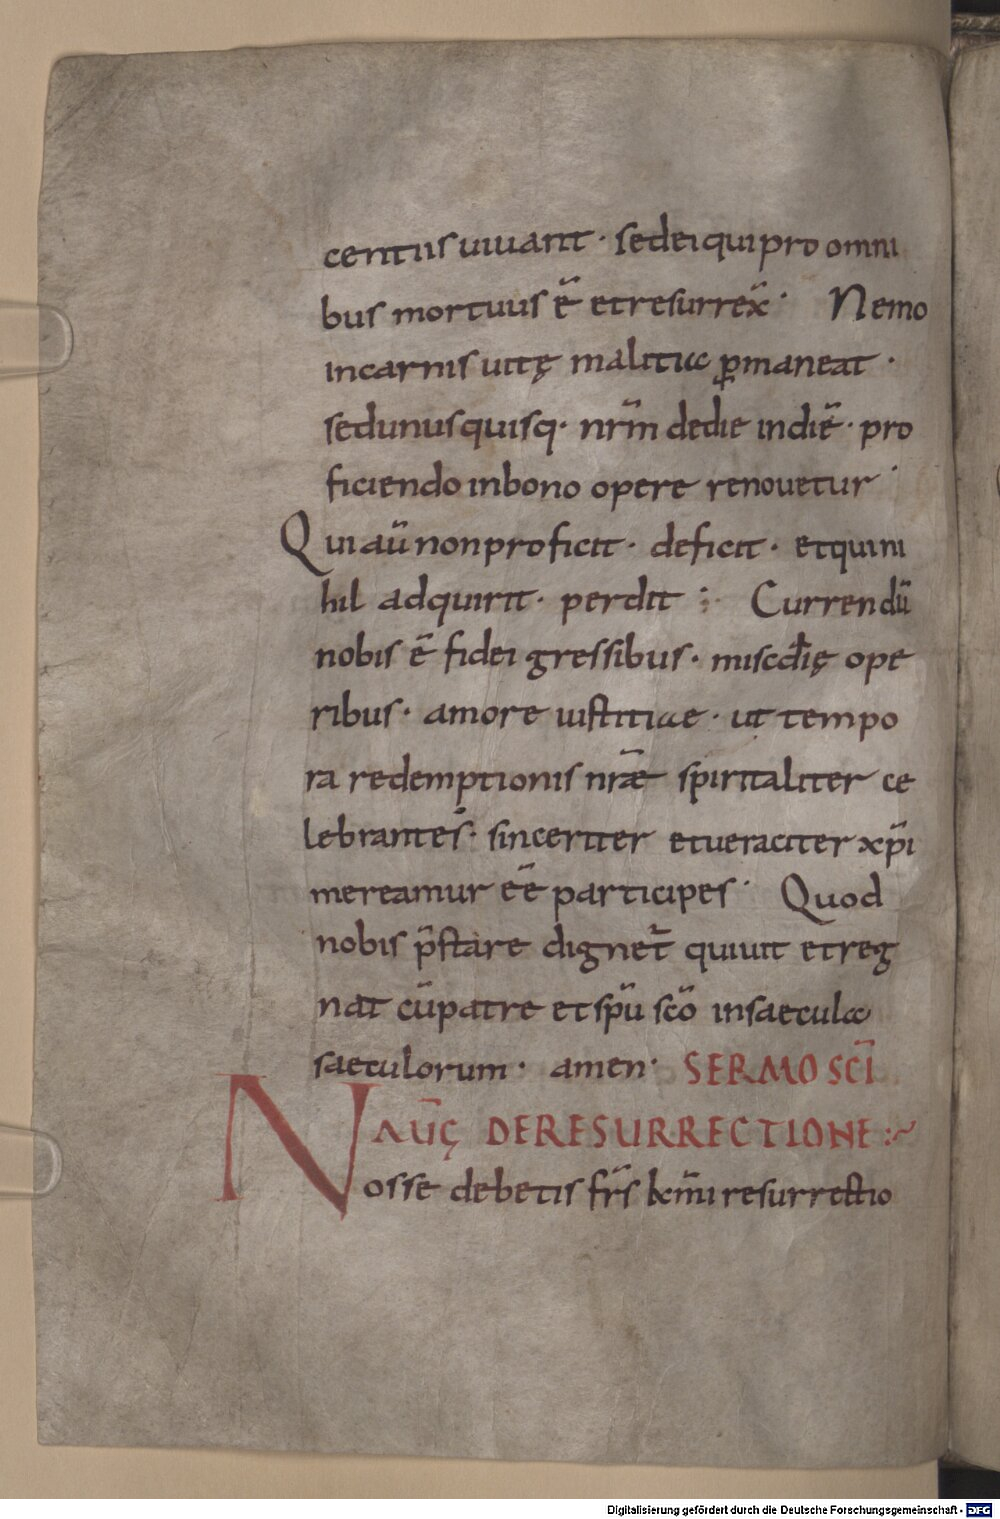 centiis uiuant · sed ei qui pro omni
bus mortuus ē et resurrex̄ · Nemo
in carnis uitę malitia ꝑmaneat ·
sed unusquisq· nr̄m de die in diē · pro
ficiendo in bono opere renouetur ·
Qui aū non proficit · deficit · et qui ni
hil adquirit · perdit : Currendū
nobis ē fidei gressibus · miscđię ope
ribus · amore iustitiae · ut tempo
ra redemptionis nr̄ae spiritaliter ce
lebrantes · sinceriter et ueraciter xp̄i
mereamur eē participes · Quod
nobis p̄stare dignet̄ qui uiuit et reg
nat cū patre et spū scō in saecula
saeculorum · amen · SERMO SCĪ
AUḠ DE RESURRECTIONE :~
Nosse debetis fr̄s km̄i resurrectio